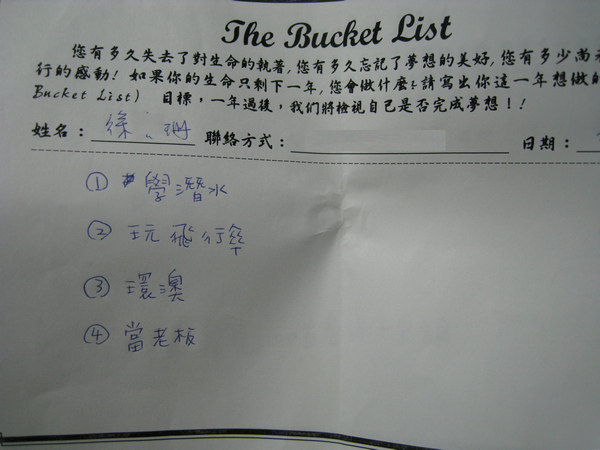 The Bucket List
您有多久失去了對生命的執著,您有多久忘記了夢想的美好,您有多少尚未
行的感動! 如果你的生命只剩下一年,您會做什麼?請寫出你這一年想做的
Bucket List) 目標,一年過後,我們將檢視自己是否完成夢想!!
姓名: 徐 珊 聯絡方式: 日期:
① 學潛水
② 玩飛行傘
③ 環澳
④ 當老板